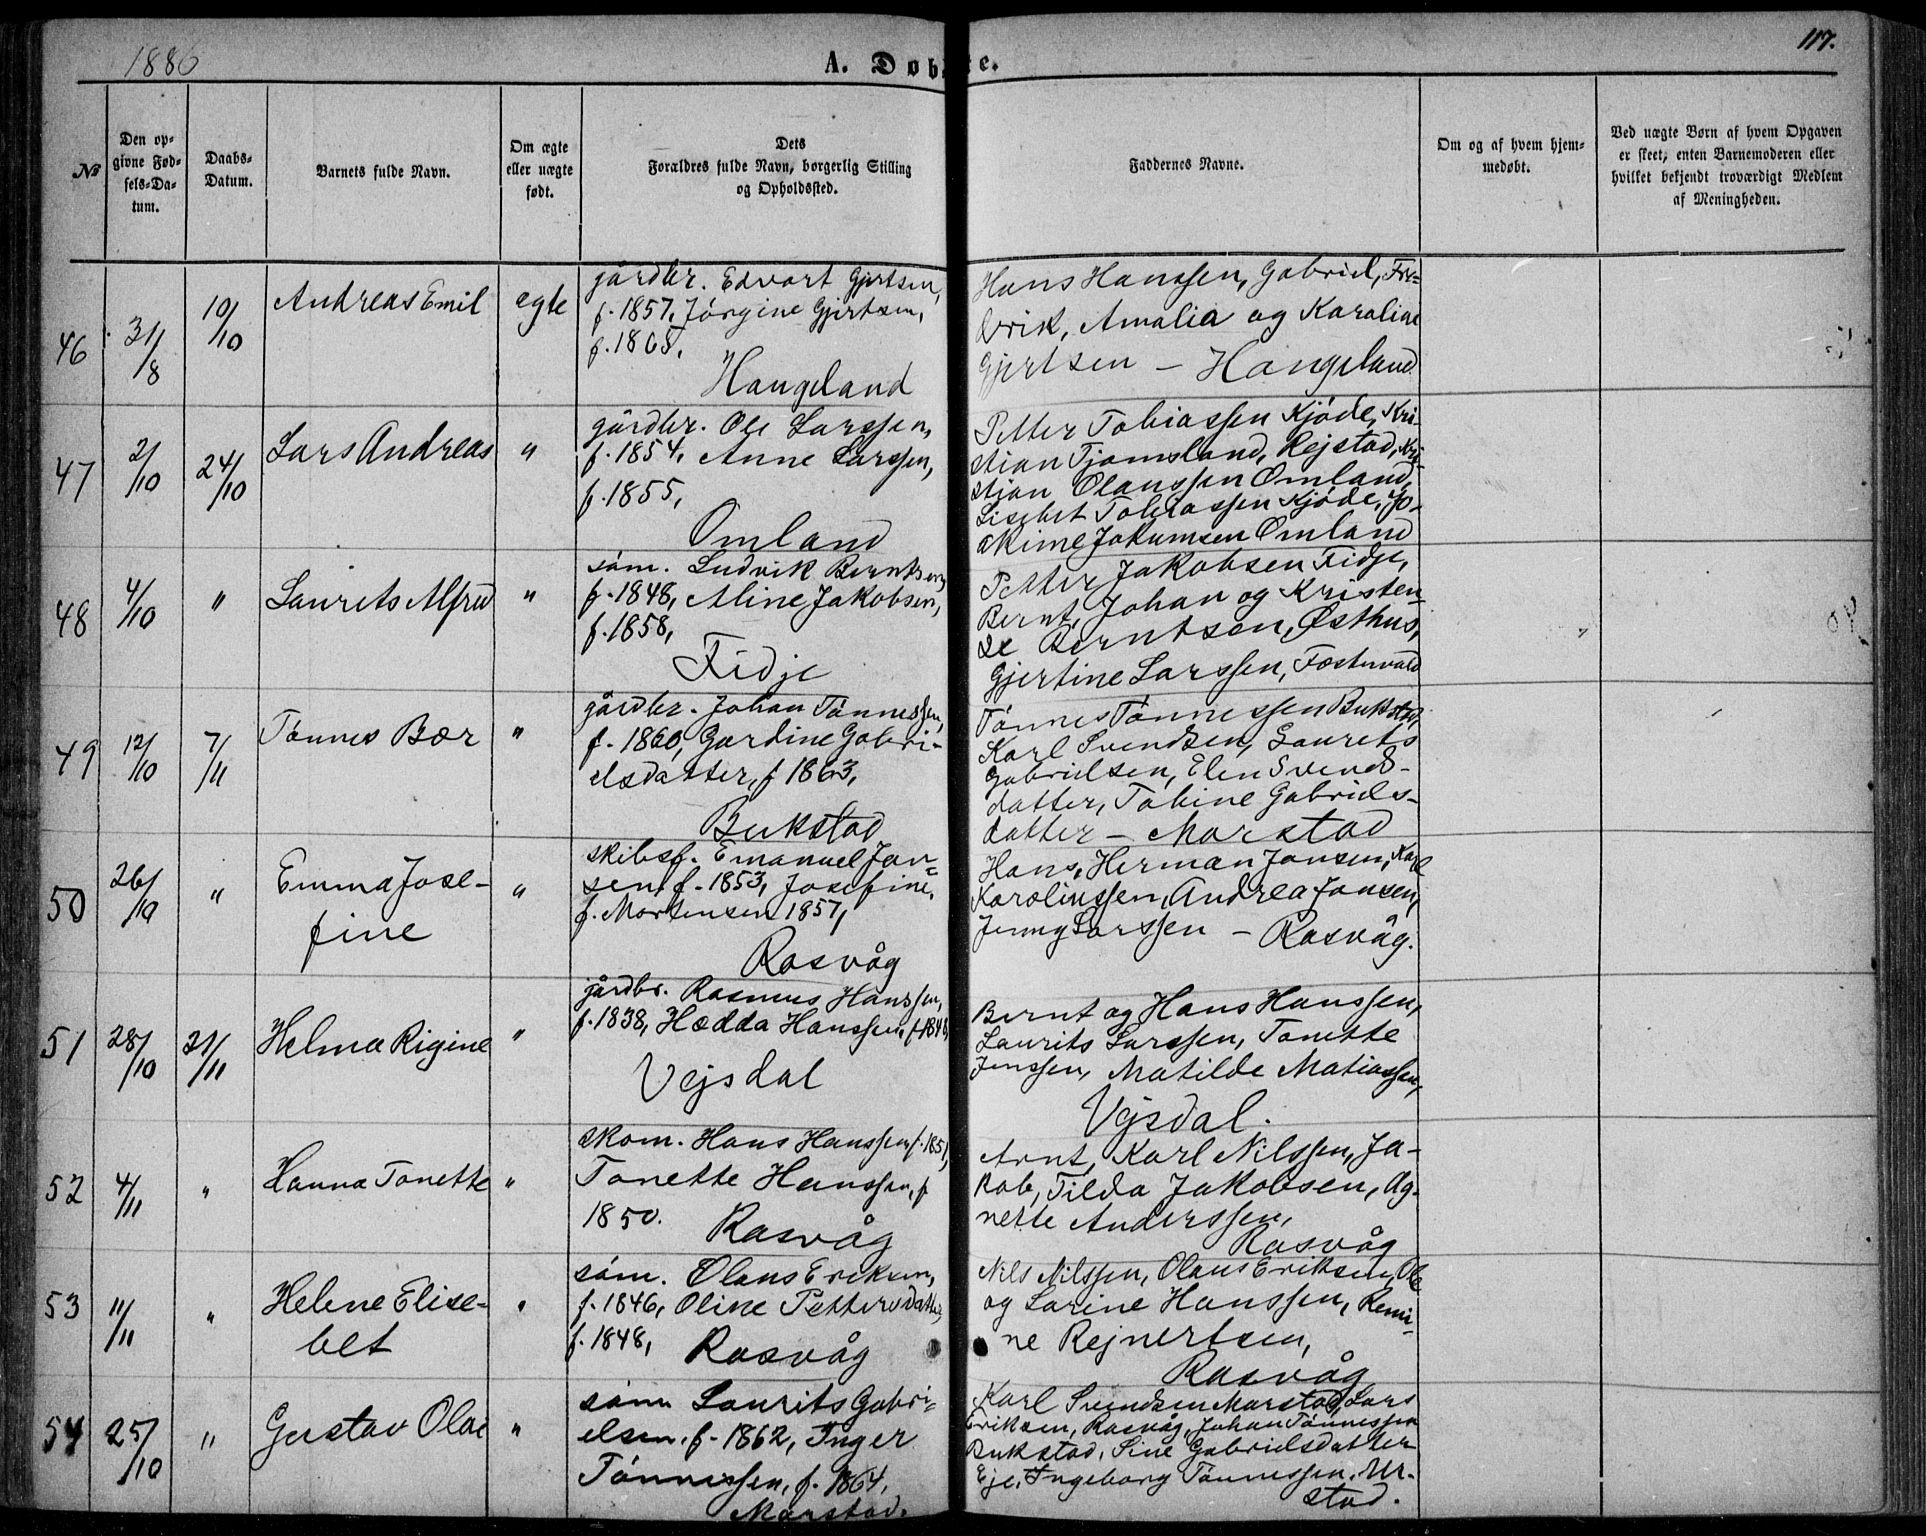 1886
A. Døbte.
117.
№
Den opgivne Fødsels-Datum.
Daabs-Datum.
Barnets fulde Navn.
Om ægte eller uægte født.
Dets Forældres fulde Navn, borgerlig Stilling og Opholdssted.
Faddernes Navne.
Om og af hvem hjemmedøbt.
Ved uægte Børn af hvem Opgaven er skeet, enten Barnemoderen eller hvilket bekjendt troværdigt Medlem af Menigheden.
46 31/8 10/10 Andreas Emil egte
gårdbr. Edvart Gjertsen,
f. 1857, Jörgine Gjertsen,
f. 1868,
Haugeland
Hans Hanssen, Gabriel, Fre-
drik, Amalia og Karoline
Gjertsen – Haugeland
47 2/10 24/10 Lars Andreas "
gårdbr. Ole Larssen,
f. 1854, Anne Larssen,
f. 1855,
Omland
Petter Tobiassen Kjöde, Kri-
stian Tjomsland, Rejstad, Kri-
stian Olaussen Omland,
Lisebet Tobiassen Kjöde, Jo-
akime Jokumsen Omland
48 4/10 " Laurits Alfred "
söm. Ludvik Berntsen,
f. 1848, Aline Jakobsen,
f. 1858,
Fidje
Petter Jakobsen Fidje,
Bernt, Johan og Kristen-
se Berntsen, Østhus,
Gjertine Larssen, Fostervold
49 12/10 7/11 Tönnes Bær "
gårdbr. Johan Tönnessen,
f. 1860, Gardine Gabri-
elsdatter, f 1863,
Bukstad
Tönnes Tönnessen Bukstad,
Karl Svendsen, Laurits
Gabrielsen, Elen Svends-
datter, Tobine Gabriels-
datter – Marstad
50 26/10 " Emma Jose- "
fine
skibsf. Emanuel Jan-
sen f. 1853, Josefine,
f. Mortensen 1857,
Rasvåg
Hans, Herman Jansen, Karl
Karolinssen, Andrea Jansen,
Jenny Larssen – Rasvåg.
51 28/10 21/11 Helma Rigine "
gårdbr. Rasmus Hanssen,
f. 1838, Hædda Hanssen, f. 1848
Vejsdal
Bernt og Hans Hanssen,
Laurits Larssen, Tonette
Jenssen, Matilde Matiassen,
Vejsdal.
52 4/11 " Hanna Tonette "
skom. Hans Hanssen f. 1851,
Tonette Hanssen, f
1850.
Rasvåg
Arnt, Karl Nilssen, Ja-
kob, Tilda Jakobsen, Ag-
nette Anderssen,
Rasvåg
53 11/11 " Helene Elise- "
bet
söm. Olaus Eriksen,
f. 1846, Oline Pettersdatter,
f. 1848,
Rasvåg
Nils Nilssen, Olaus Eriksen, Ole
og Sarine Hanssen, Remi-
ne Rejnertsen,
Rasvåg
54 25/10 " Gustav Olai "
söm Laurits Gabri-
elsen, f. 1862, Inger
Tönnessen, f. 1864,
Marstad.
Karl Svendsen Marstad, Lars
Eriksen, Rasvåg, Johan Tönnessen
Bukstad, Sine Gabrielsdatter
Eje, Ingeborg Tönnessen, Ur-
stad.